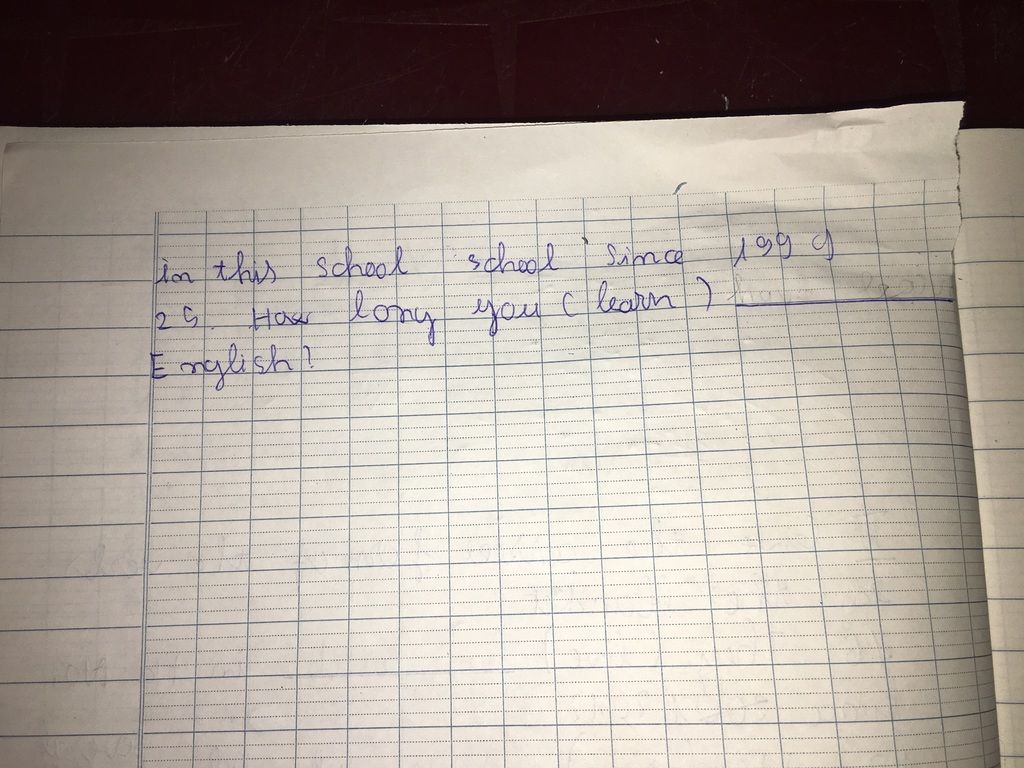 in this school school since 1999
25. How long you (learn)
English?